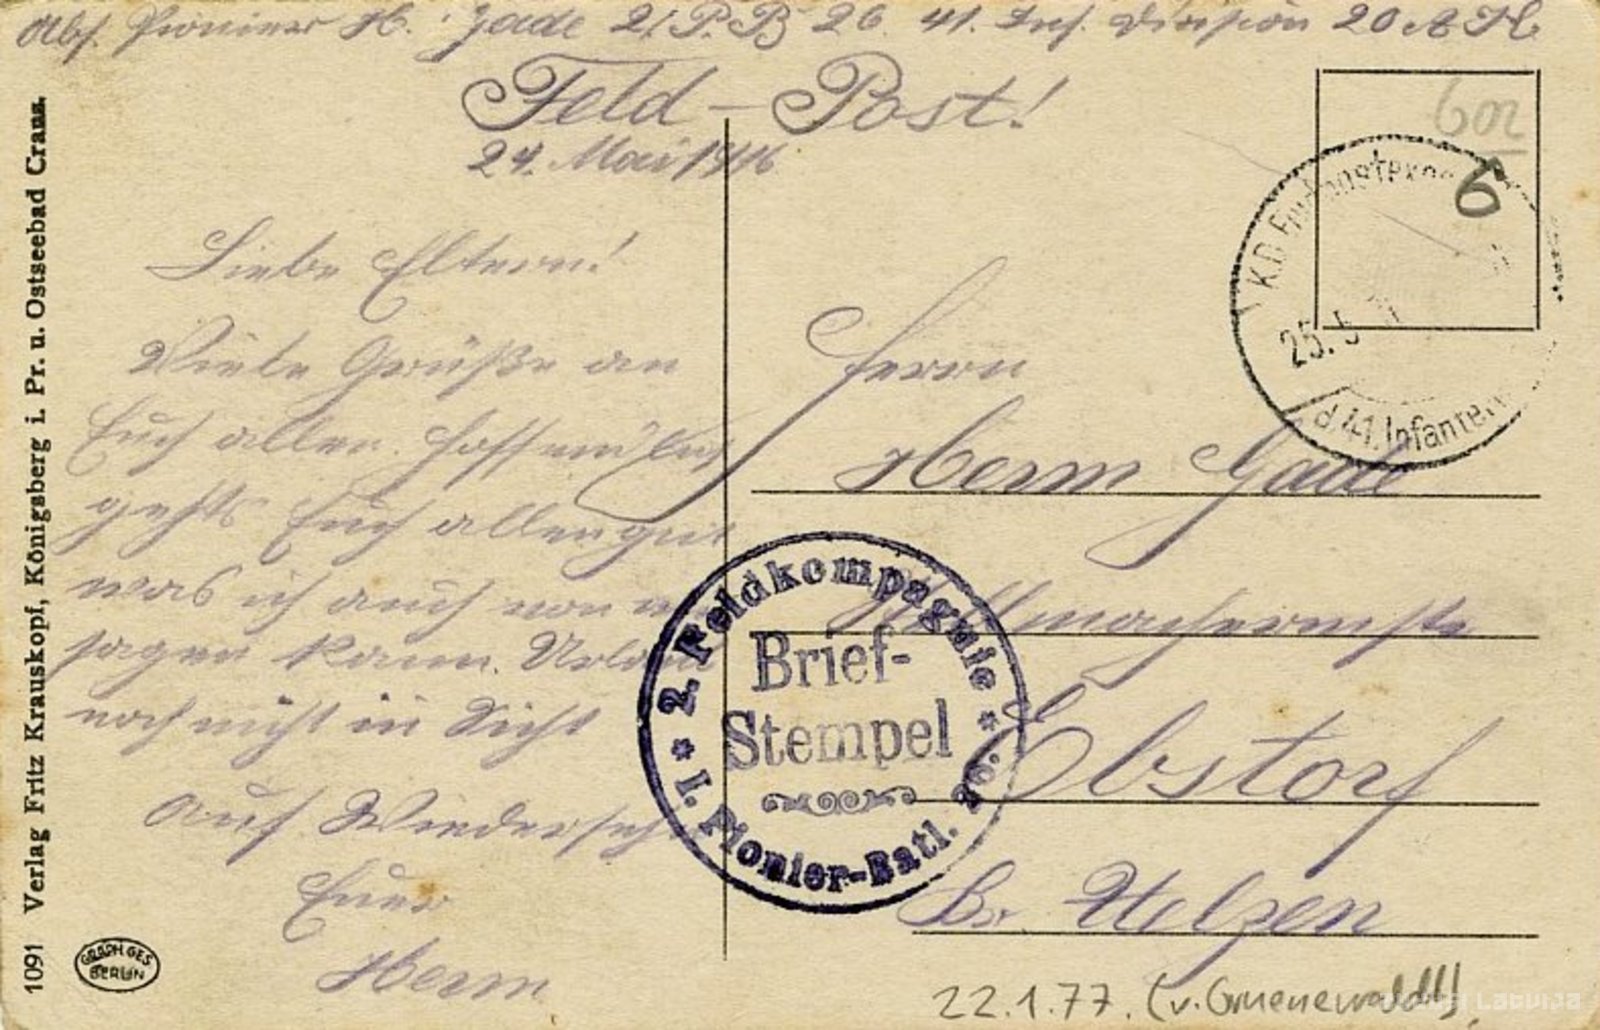 Abs. Pionier H. Gade 2/P.B 26. 41. Inf. Division 20 A.K.
Feld-Post!
24. Mai 1916
Liebe Eltern!
Viele Grüße an
Euch allen. Hoffentlich
gehts Euch allen gut
was ich auch von mir
sagen kann. Urlaub
noch nicht in Sicht
Auf Wiedersehn
Euer
Herm
Herrn
Herm Gade
Stellmachermstr
Ebstorf
Br. Uelzen
602
6
K.D. Feldpostexped
25. 5
d. 41. Infanterie
2. Feldkompagnie
Brief-
Stempel
* I. Pionier-Batl. 26. *
1091 Verlag Fritz Krauskopf, Königsberg i. Pr. u. Ostseebad Cranz.
GRAPH. GES.
BERLIN
22.1.77. (v. Gruenewaldt)
Latvija